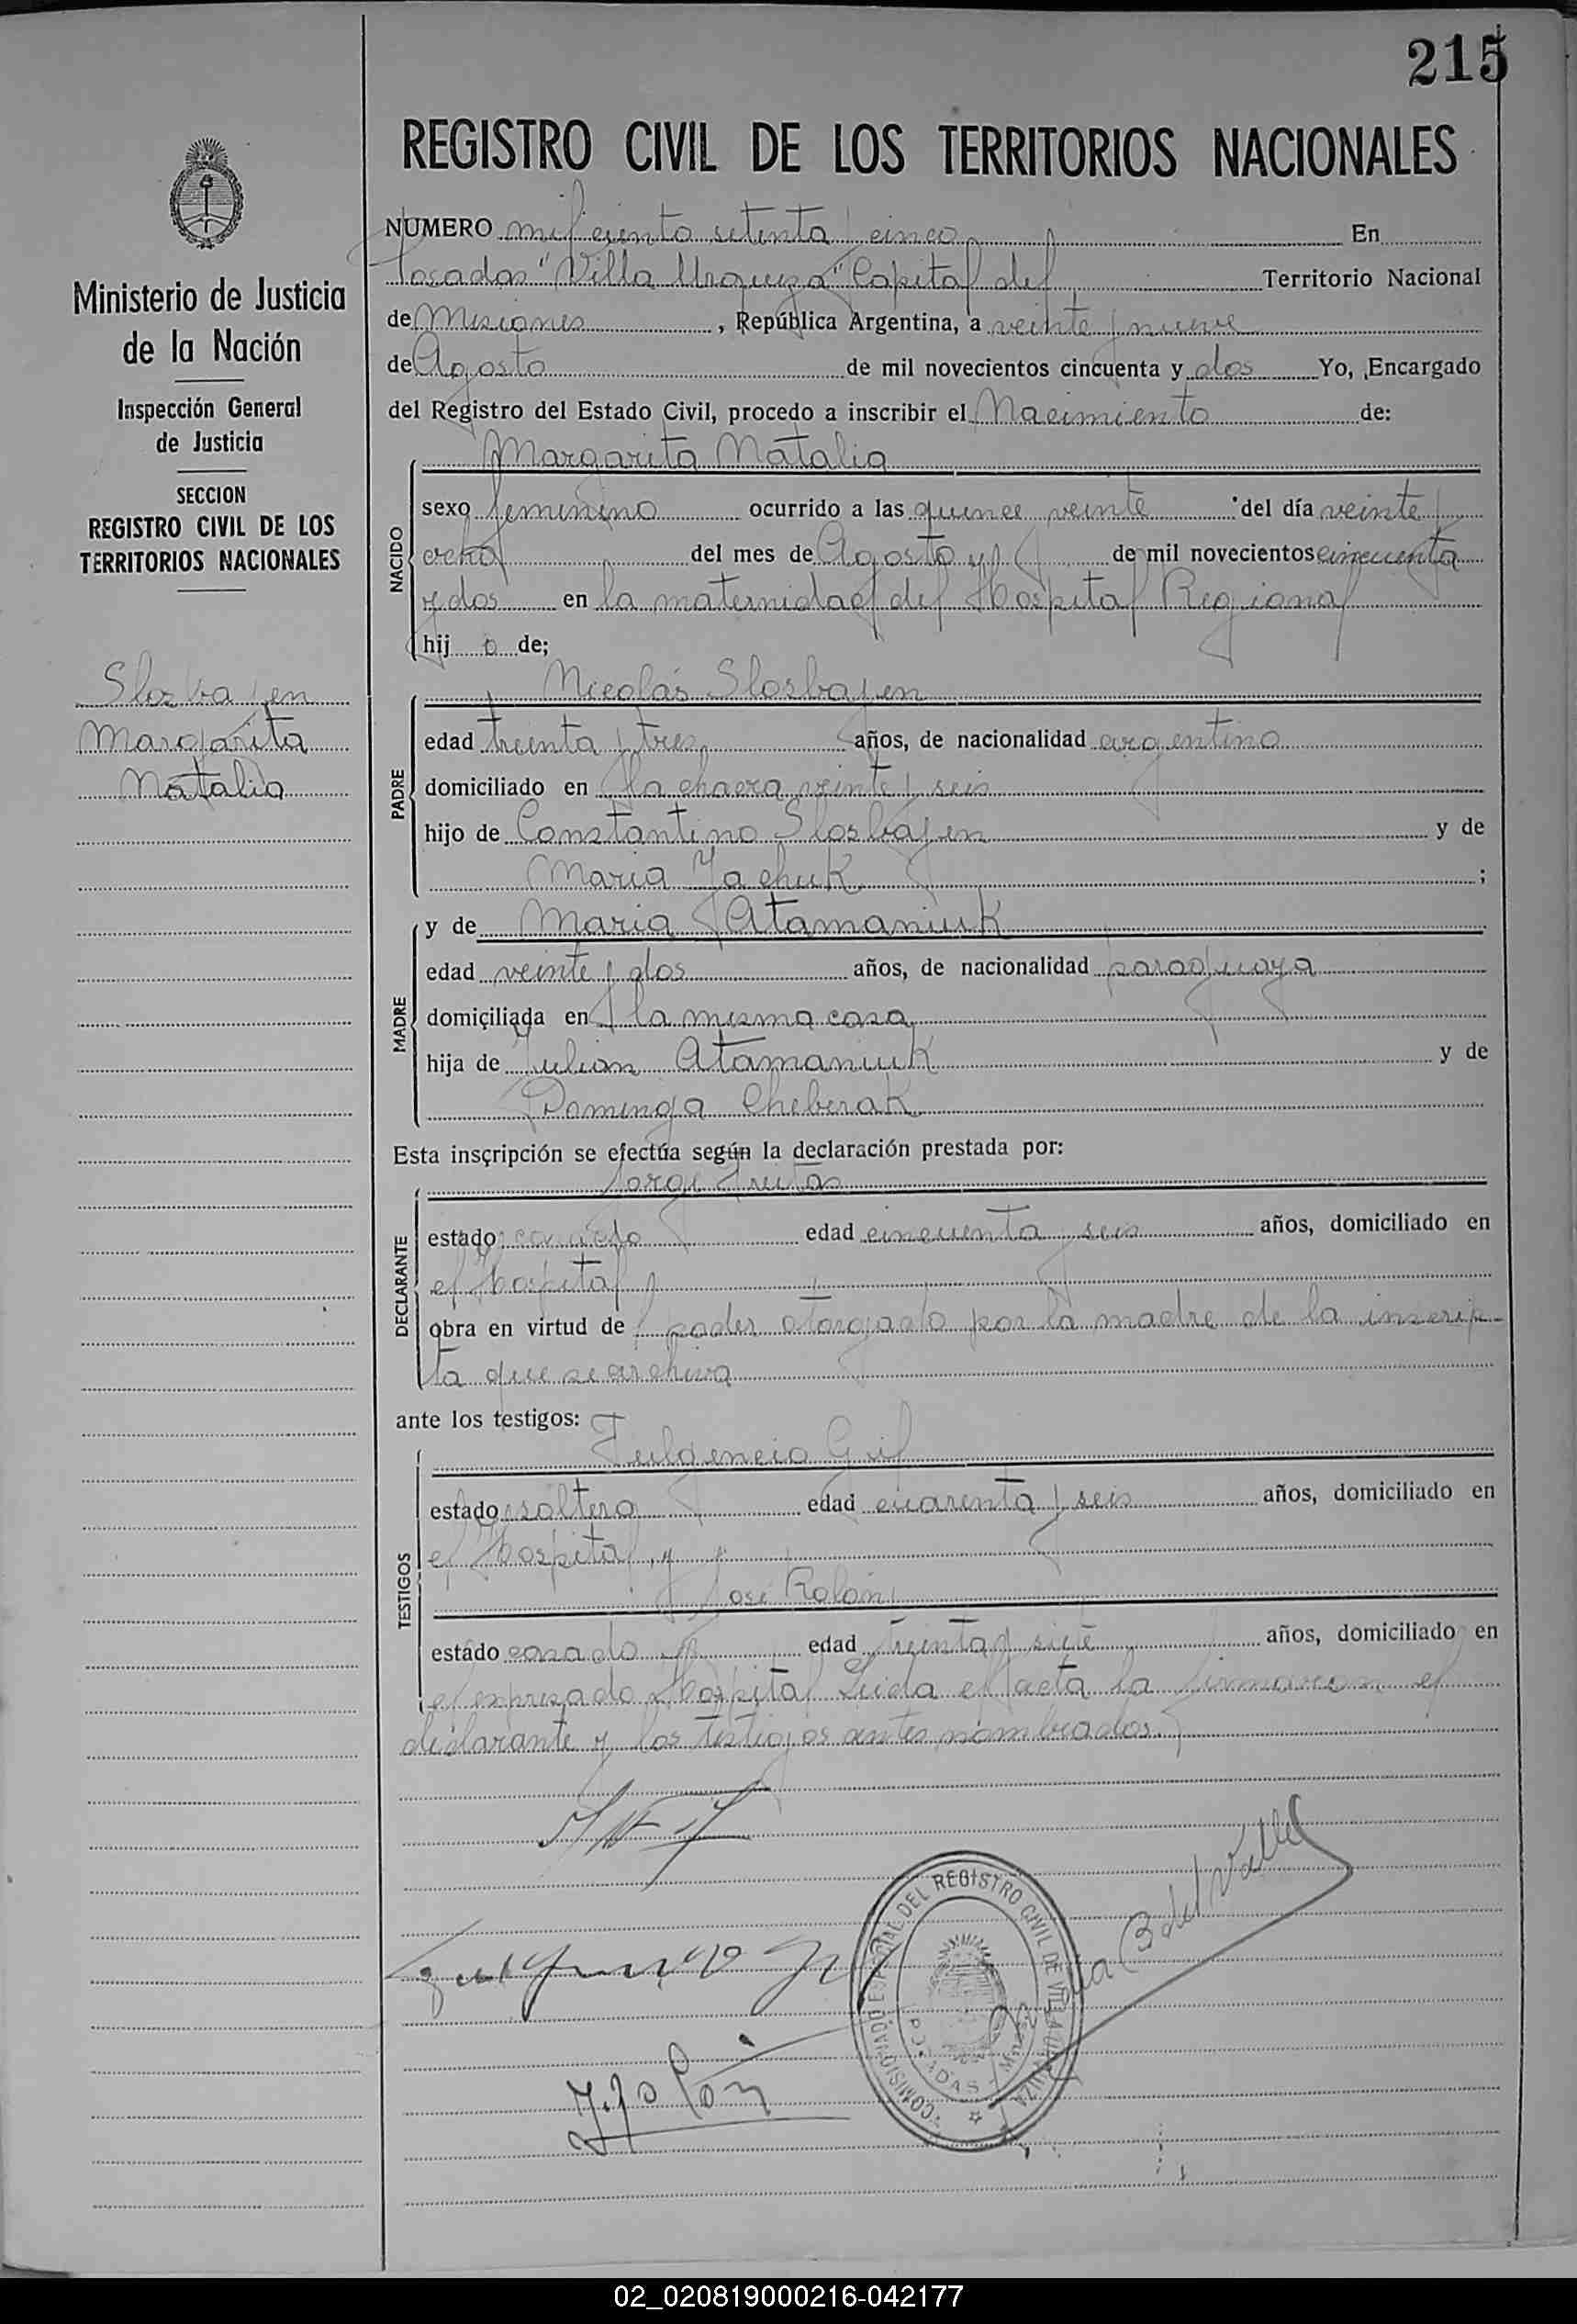 215
REGISTRO CIVIL DE LOS TERRITORIOS NACIONALES
Ministerio de Justicia
de la Nación
Inspección General
de Justicia
SECCION
REGISTRO CIVIL DE LOS
TERRITORIOS NACIONALES
Slosbajen
Margarita
Natalia
NUMERO mil ciento setenta y cinco En
Posadas "Villa Urquiza" Capital del Territorio Nacional
de Misiones, República Argentina, a veinte y nueve
de Agosto de mil novecientos cincuenta y dos Yo, Encargado
del Registro del Estado Civil, procedo a inscribir el Nacimiento de:
NACIDO
Margarita Natalia
sexo femenino ocurrido a las quince veinte del día veinte y
ocho del mes de Agosto de mil novecientos cincuenta
y dos en la maternidad del Hospital Regional
hij a de;
PADRE
Nicolás Slosbajen
edad treinta y tres años, de nacionalidad argentino
domiciliado en la chacra veinte y seis
hijo de Constantino Slosbajen y de
Maria Jachuk ;
MADRE
y de Maria Atamaniuk
edad veinte y dos años, de nacionalidad paraguaya
domiciliada en la misma casa
hija de Julian Atamaniuk y de
Dominga Cheberak
Esta inscripción se efectúa según la declaración prestada por:
DECLARANTE
Jorge Freitas
estado casado edad cincuenta y seis años, domiciliado en
el Hospital
obra en virtud de poder otorgado por la madre de la inscrip-
ta que se archiva
ante los testigos:
TESTIGOS
Fulgencio Gil
estado soltero edad cuarenta y seis años, domiciliado en
el Hospital y
José Rolón
estado casado edad treinta y siete años, domiciliado en
el expresado Hospital Leida el acta la firmaron el
declarante y los testigos antes nombrados.
Fulgencio Gil
J. Rolón
B del Valle
COMISIONADO ESPECIAL DEL REGISTRO CIVIL DE VILLA URQUIZA
POSADAS
02_020819000216-042177